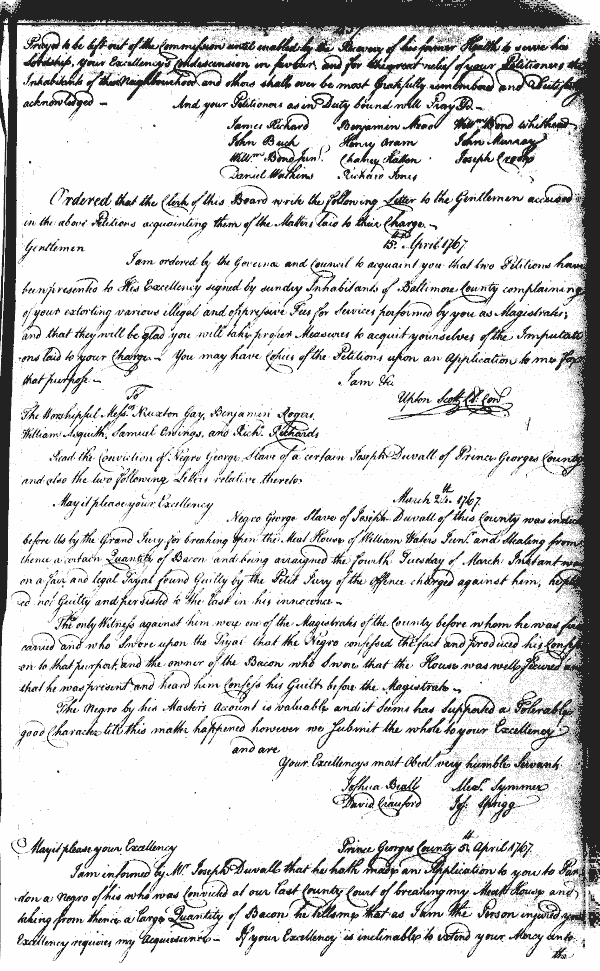 Prayed to be left out of the Commission until enabled by the Recovery of his former Health to serve his
Lordship, your Excellency's Condescension in favour, and for the great relief of your Petitioners the
Inhabitants of this Neighbourhood and others shall ever be most Gratefully remembered and Dutifully
acknowledged — And your Petitioners as in Duty bound will Pray &c. —
James Richard Benjamin Mead Willm. Bond Whitehead
John Buck Henry Oram John Murray
Willm. Bond junr. Chaney Hatton Joseph Crooks
Daniel Watkins Richard Jones
Ordered that the Clerk of this Board write the following Letter to the Gentlemen accused
in the above Petitions acquainting them of the Matters laid to their Charge. —
15th. April 1767.
Gentlemen
I am ordered by the Governor and Council to acquaint you that two Petitions have
been presented to His Excellency signed by sundry Inhabitants of Baltimore County complaining
of your extorting various illegal and oppressive Fees for Services performed by you as Magistrates;
and that they will be glad you will take proper Measures to acquit yourselves of the Imputati
ons laid to your Charge — You may have Copies of the Petitions upon an Application to me for
that purpose — I am &c.
To Upton Scott Cl. Con.
The Worshipful Messrs. Nixxton Gay, Benjamin Rogers,
William Asquith, Samuel Owings, and Richd. Richards
Read the Conviction of Negro George, Slave of a certain Joseph Duvall of Prince Georges County
and also the two following Letters relative thereto.
March 24th. 1767.
May it please your Excellency
Negro George Slave of Joseph Duvall of this County was indict
before Us by the Grand Jury for breaking open the Meat House of William Waters Junr. and Stealing from
thence a certain Quantity of Bacon and being arraigned the fourth Tuesday of March Instant was
on a fair and legal Tryal found Guilty by the Petit Jury of the Offence charged against him, he ple
ed not Guilty and persisted to the last in his innocence —
The only Witness against him were one of the Magistrates of the County before whom he was first
carried and who Swore upon the Tryal that the Negro confessed the fact and produced his Confessi
on to that purport, and the owner of the Bacon who Swore that the House was well secured and
that he was present and heard him Confess his Guilt before the Magistrate —
The Negro by his Masters Account is valuable and it seems has Supported a Tolerable
good Character till this matter happened however we Submit the whole to your Excellency
and are
Your Excellencys most Obedt. very humble Servants
Joshua Beall Alexr. Symmer
David Craufurd Jos. Sprigg
May it please your Excellency Prince Georges County 5th. April 1767.
I am informed by Mr. Joseph Duvall that he hath made an Application to you to Par
don a Negro of his who was Convicted at our last County Court of breaking my Meat House and
taking from thence a large Quantity of Bacon he tells me that as I am the Person injured your
Excellency requires my Acquiescance — If your Excellency is inclinable to extend your Mercy unto
the